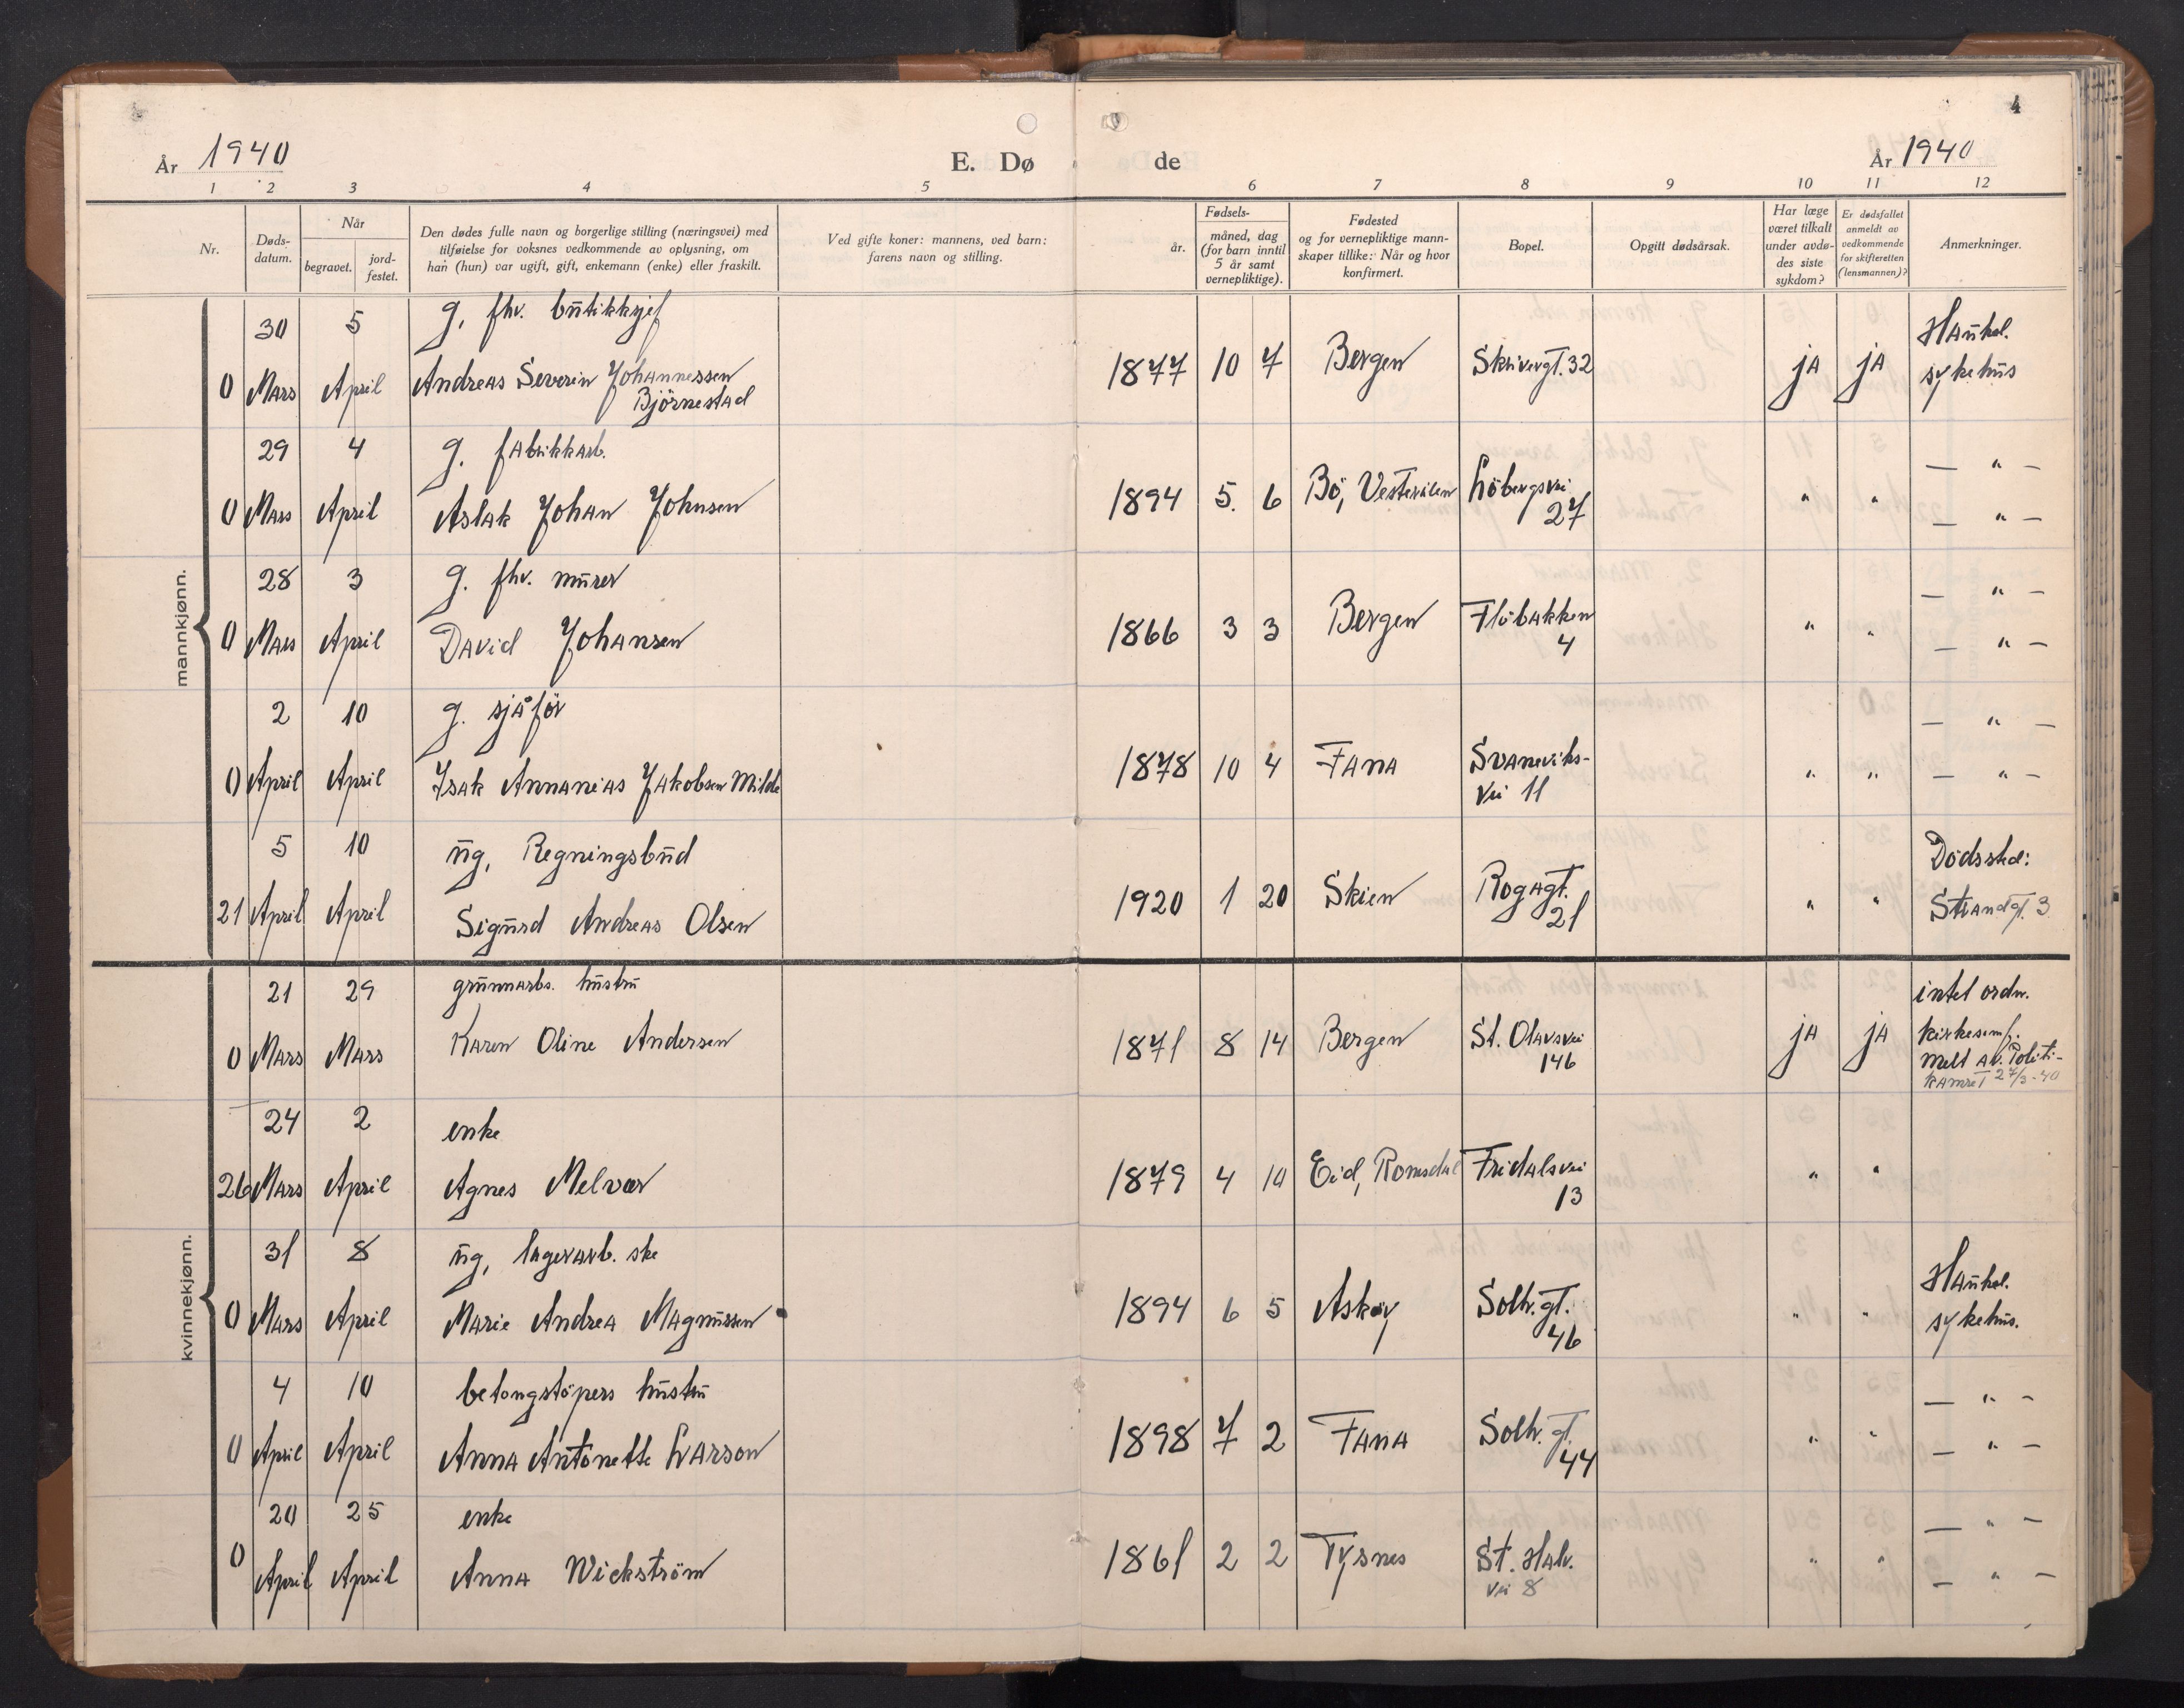 4
År 1940
E. Dø de
År 1940
1 2 3 4 5 6 7 8 9 10 11 12
Nr.
Døds-
datum.
Når
begravet.
jord-
festet.
Den dødes fulle navn og borgerlige stilling (næringsvei) med
tilføielse for voksnes vedkommende av oplysning, om
han (hun) var ugift, gift, enkemann (enke) eller fraskilt.
Ved gifte koner: mannens, ved barn:
farens navn og stilling.
Fødsels-
år.
måned, dag
(for barn inntil
5 år samt
vernepliktige).
Fødested
og for vernepliktige mann-
skaper tillike: Når og hvor
konfirmert.
Bopel.
Opgitt dødsårsak.
Har læge
været tilkalt
under avdø-
des siste
sykdom?
Er dødsfallet
anmeldt av
vedkommende
for skifteretten
(lensmannen)?
Anmerkninger.
mannkjønn.
30 5 g. fhv. butikksjef Haukel.
0 Mars April Andreas Severin Johannessen 1877 10 7 Bergen Skivergt. 32 ja ja sykehus
Björnestad
29 4 g. fabrikkarb. — " —
0 Mars April Aslak Johan Johnsen 1894 5. 6 Bö, Vesterålen Löbergsvei " " — " —
27
28 3 g. fhv. murer — " —
0 Mars April David Johansen 1866 3 3 Bergen Flöbakken " " — " —
4
2 10 g. sjåför — " —
0 April April Isak Annanias Jakobsen Milde 1878 10 4 Fana Svaneviks- " " — " —
vei 11
5 10 ug, Regningsbud Dödssted:
21 April April Sigurd Andreas Olsen 1920 1 20 Skien Rogagt. " " Strandgt. 3
21
kvinnekjønn.
21 29 grunnarbs. hustru intet ordn.
0 Mars Mars Karen Oline Andersen 1871 8 14 Bergen St. Olavsvei ja ja kirkesem f.
146 melt av. Politi-
kamret 27/3-40
24 2 enke
26 Mars April Agnes Melvær 1879 4 10 Eid, Romsdal Fridalsvei " "
13
31 8 ug, lagerarb. ske Haukel.
0 Mars April Marie Andrea Magnussen 1894 6 5 Asköy Solh. gt. " " sykehus.
46
4 10 betongstöpers hustru — " —
0 April April Anna Antonette Larson 1898 7 2 Fana Solh. gt. " " — " —
44
20 25 enke — " —
0 April April Anna Wickström 1861 2 2 Tysnes St. Halv. " " — " —
vei 8